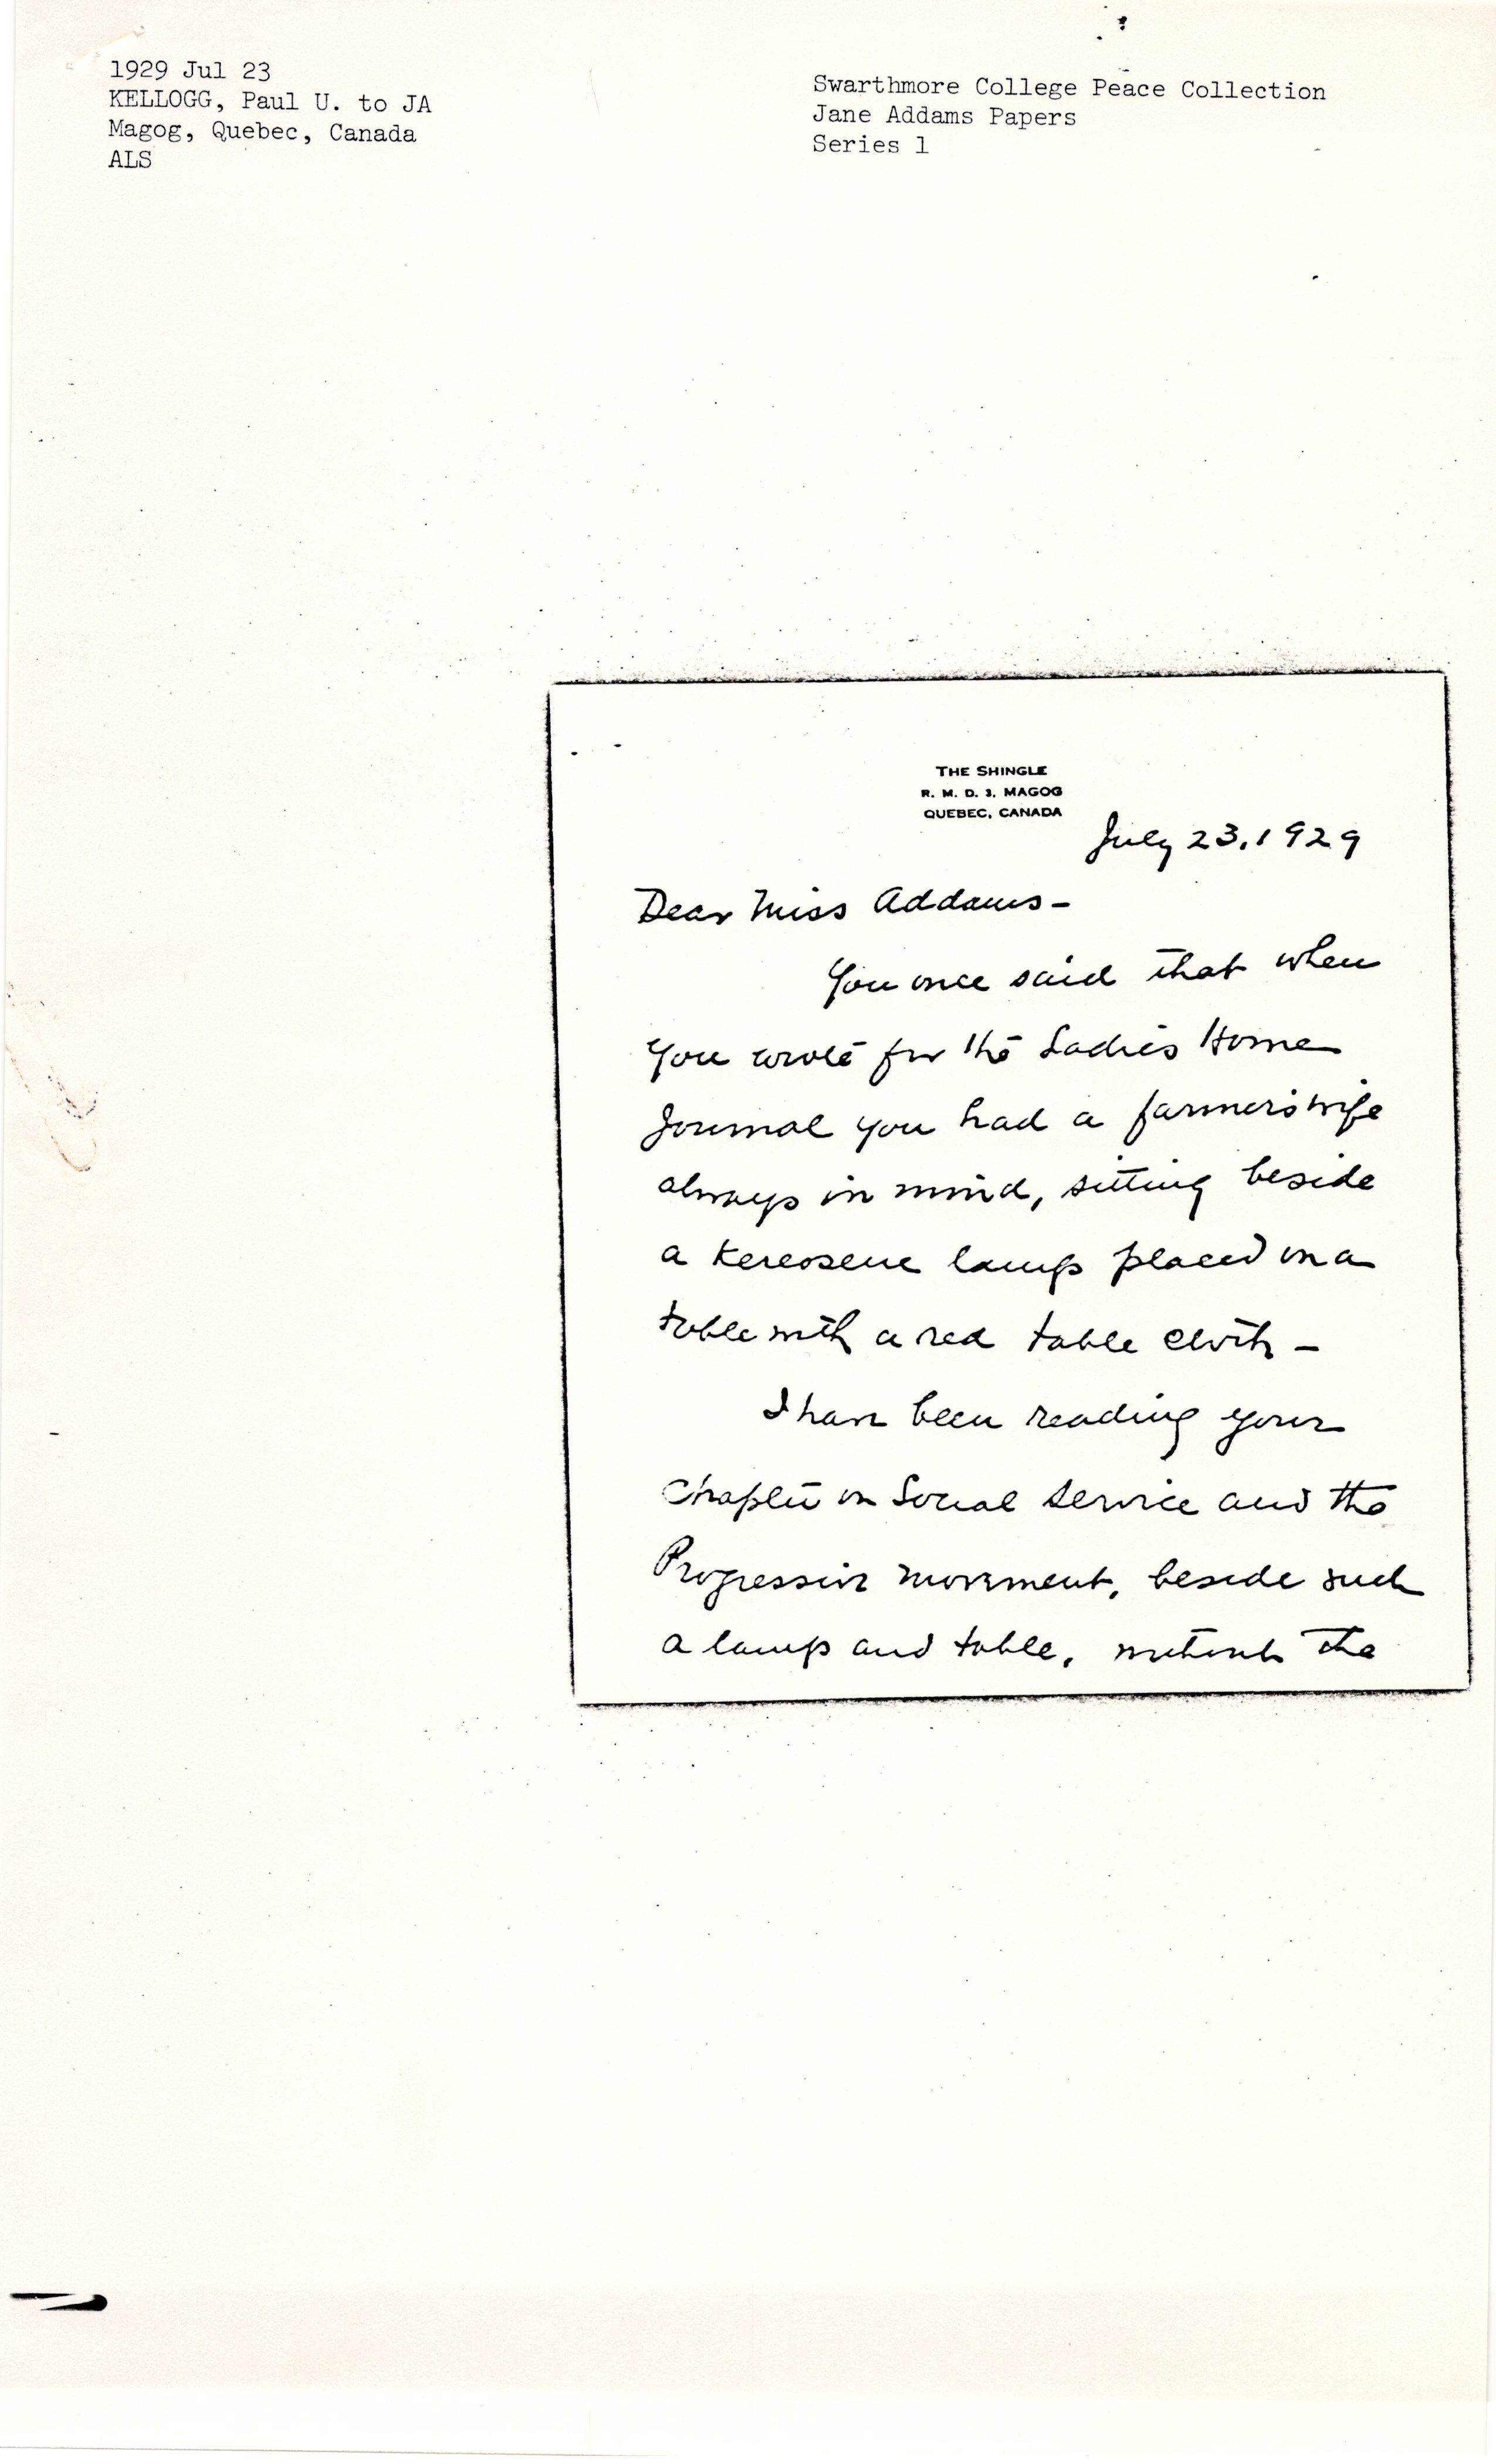 1929 Jul 23
KELLOGG, Paul U. to JA
Magog, Quebec, Canada
ALS
Swarthmore College Peace Collection
Jane Addams Papers
Series 1
THE SHINGLE
R. M. D. 3, MAGOG
QUEBEC, CANADA
July 23, 1929
Dear Miss Addams-
You once said that when
you wrote for the Ladies Home
Journal you had a farmers wife
always in mind, sitting beside
a kereosene lamp placed on a
table with a red table cloth -
I have been reading your
chapter on Social Service and the
Progressive movement, beside such
a lamp and table, without the